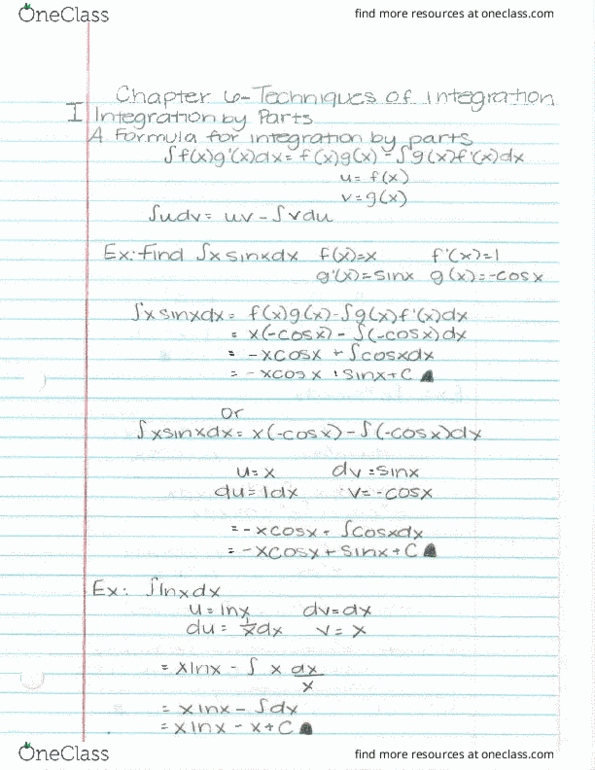 OneClass find more resources at oneclass.com
Chapter 6-Techniques of integration
I Integration by Parts
A. Formula for integration by parts
∫f(x)g'(x)dx = f(x)g(x) - ∫g(x)f'(x)dx
u = f(x)
v = g(x)
∫udv = uv - ∫vdu
Ex: Find ∫x sinxdx f(x)=x f'(x)=1
g'(x)=sinx g(x)=-cosx
∫x sinxdx = f(x)g(x)-∫g(x)f'(x)dx
= x(-cosx) - ∫(-cosx)dx
= -xcosx + ∫cosxdx
= -xcosx + sinx+C
or
∫xsinxdx = x(-cosx) - ∫(-cosx)dx
u=x dv=sinx
du=1dx v=-cosx
= -xcosx + ∫cosxdx
= -xcosx + sinx + C
Ex: ∫lnxdx
u = lnx dv=dx
du = 1/x dx v = x
= xlnx - ∫ x dx/x
= xlnx - ∫dx
= xlnx - x+C
OneClass find more resources at oneclass.com